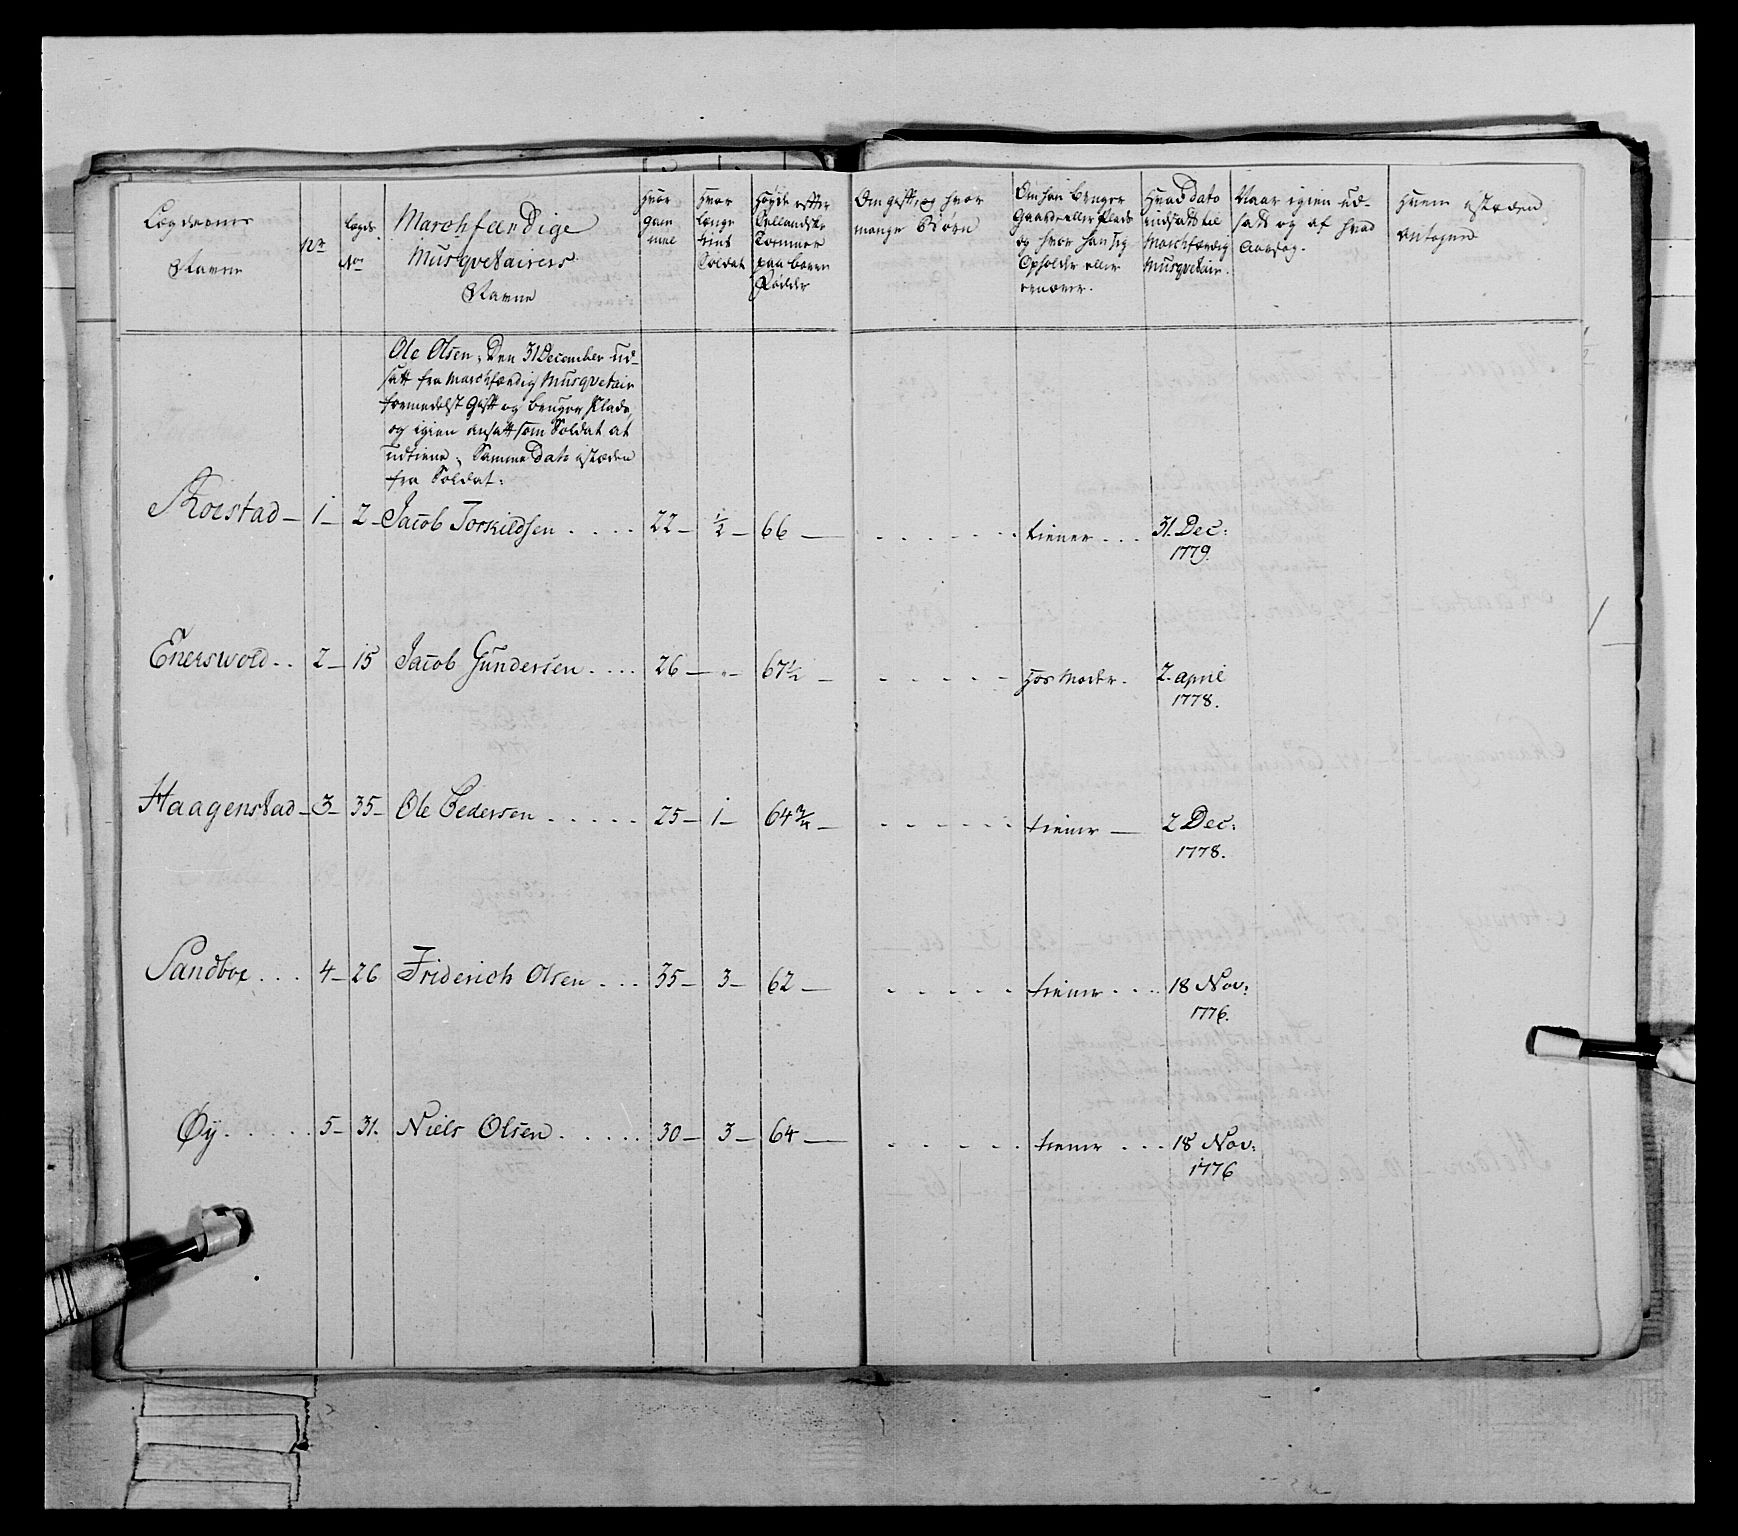 Lægdernes
Navne
Nr
Lægds
No
Marchfærdige
Musqvetairers
Navne
Hvor
gam
mel
Hvor
længe
tient
Soldat
Høyde efter
Sellandske
Tommer
paa bare
Fødder
Om gift, og hvor
mange Børn
Om han bruger
Gaard eller Plads
og hvor han sig
Opholder eller
Hvad Dato
indsadt til
Marchfærdig
Musqvetair.
Naar igien ud-
sadt og af hvad
Aarsag.
Hvem isteden
antagen
Ole Olsen, Den 31 December ud-
satt fra Marchfærdig Musqvetair
formedelst Gift og bruger Plads,
og igien ansatt som Soldat at
udtiene, Samme Dato isteden
fra Soldat:
Roestad — 1 — 2 — Jacob Torkildsen . . . . 22 — ½ — 66 — . . . . . tiener . . . 31. Dec:
1779.
Enerswold . . 2 — 15 Jacob Gundersen . . . . 26 — " — 67½ — - - - - - Hos Moder . 2. april
1778.
Haagenstad — 3 — 35 — Ole Pedersen . . . . . 25 — 1 — 64¾ — - - - - - tiener — 2 Dec:
1778.
Sandboe . . . 4 — 26 Friderich Olsen . . . 35 — 3 — 62 — - - - - - tiener . . . 18 Nov:
1776.
Øy . . . . . 5 — 31. Niels Olsen . . . . . 30 — 3 — 64 — - - - - - tiener . . . 18 Nov:
1776